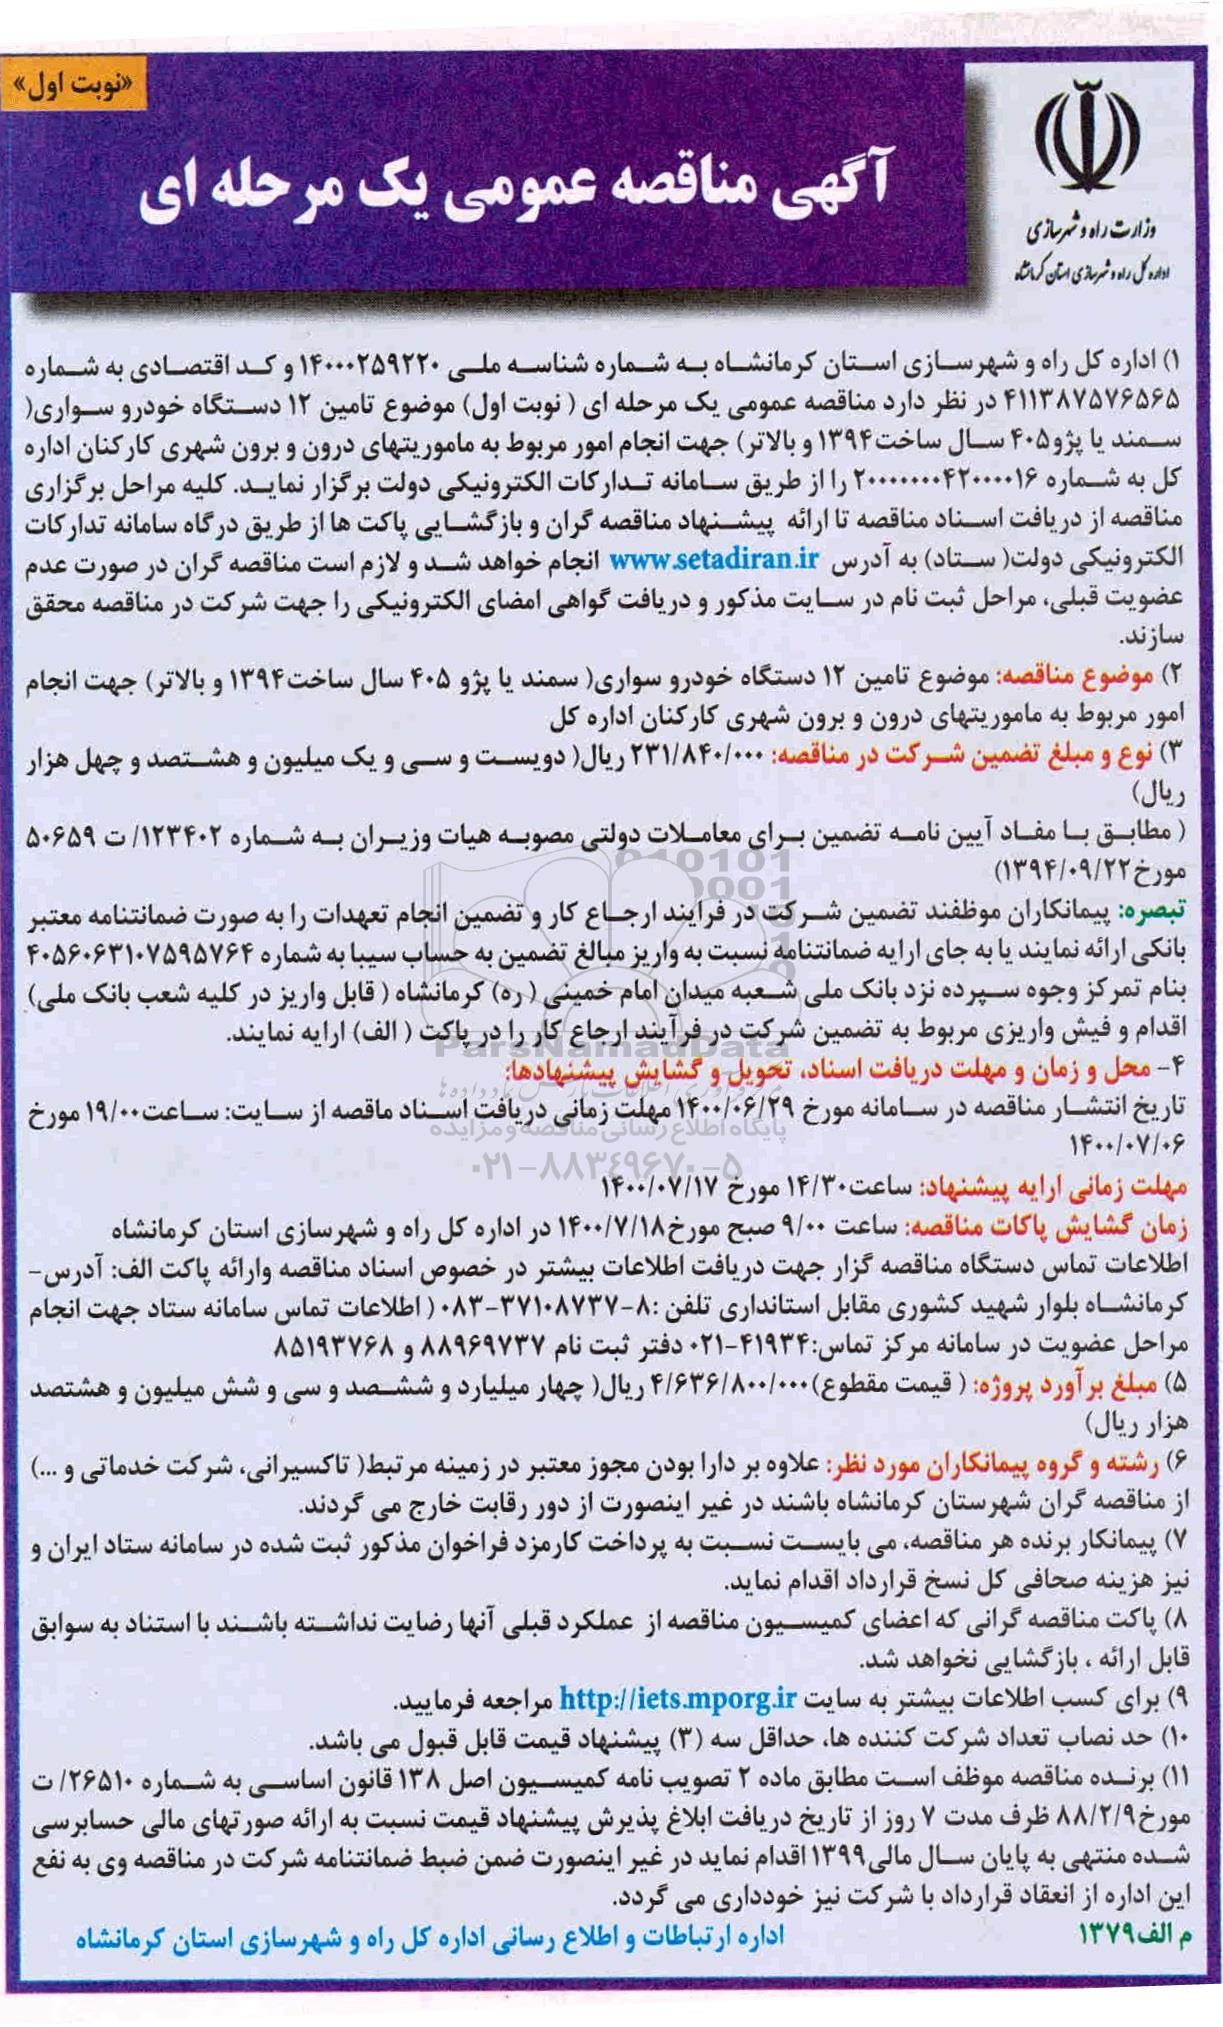 «نوبت اول»
آگهی مناقصه عمومی یک مرحله ای
وزارت راه و شهرسازی
اداره کل راه و شهرسازی استان کرمانشاه
۱) اداره کل راه و شهرسازی استان کرمانشاه به شماره شناسه ملی ۱۴۰۰۰۲۵۹۲۲۰ و کد اقتصادی به شماره
۴۱۱۳۸۷۵۷۶۵۶۵ در نظر دارد مناقصه عمومی یک مرحله ای ( نوبت اول) موضوع تامین ۱۲ دستگاه خودرو سواری(
سمند یا پژو۴۰۵ سال ساخت۱۳۹۴ و بالاتر) جهت انجام امور مربوط به ماموریتهای درون و برون شهری کارکنان اداره
کل به شماره ۲۰۰۰۰۰۰۰۴۲۰۰۰۰۱۶ را از طریق سامانه تدارکات الکترونیکی دولت برگزار نماید. کلیه مراحل برگزاری
مناقصه از دریافت اسناد مناقصه تا ارائه پیشنهاد مناقصه گران و بازگشایی پاکت ها از طریق درگاه سامانه تدارکات
الکترونیکی دولت( ستاد) به آدرس www.setadiran.ir انجام خواهد شد و لازم است مناقصه گران در صورت عدم
عضویت قبلی، مراحل ثبت نام در سایت مذکور و دریافت گواهی امضای الکترونیکی را جهت شرکت در مناقصه محقق
سازند.
۲) موضوع مناقصه: موضوع تامین ۱۲ دستگاه خودرو سواری( سمند یا پژو ۴۰۵ سال ساخت۱۳۹۴ و بالاتر) جهت انجام
امور مربوط به ماموریتهای درون و برون شهری کارکنان اداره کل
۳) نوع و مبلغ تضمین شرکت در مناقصه: ۲۳۱/۸۴۰/۰۰۰ ریال( دویست و سی و یک میلیون و هشتصد و چهل هزار
ریال)
( مطابق با مفاد آیین نامه تضمین برای معاملات دولتی مصوبه هیات وزیران به شماره ۱۲۳۴۰۲/ ت ۵۰۶۵۹
مورخ۱۳۹۴/۰۹/۲۲)
تبصره: پیمانکاران موظفند تضمین شرکت در فرایند ارجاع کار و تضمین انجام تعهدات را به صورت ضمانتنامه معتبر
بانکی ارائه نمایند یا به جای ارایه ضمانتنامه نسبت به واریز مبالغ تضمین به حساب سیبا به شماره ۴۰۵۶۰۶۳۱۰۷۵۹۵۷۶۴
بنام تمرکز وجوه سپرده نزد بانک ملی شعبه میدان امام خمینی ( ره) کرمانشاه ( قابل واریز در کلیه شعب بانک ملی)
اقدام و فیش واریزی مربوط به تضمین شرکت در فرآیند ارجاع کار را در پاکت ( الف) ارایه نمایند.
ParsNamadData
۴- محل و زمان و مهلت دریافت اسناد، تحویل و گشایش پیشنهادها:
تاریخ انتشار مناقصه در سامانه مورخ ۱۴۰۰/۰۶/۲۹ مهلت زمانی دریافت اسناد ماقصه از سایت: ساعت۱۹/۰۰ مورخ
پایگاه اطلاع رسانی مناقصه و مزایده
۱۴۰۰/۰۷/۰۶
۰۲۱-۸۸۳۴۹۶۷۰-۵
مهلت زمانی ارایه پیشنهاد: ساعت۱۴/۳۰ مورخ ۱۴۰۰/۰۷/۱۷
زمان گشایش پاکات مناقصه: ساعت ۹/۰۰ صبح مورخ۱۴۰۰/۷/۱۸ در اداره کل راه و شهرسازی استان کرمانشاه
اطلاعات تماس دستگاه مناقصه گزار جهت دریافت اطلاعات بیشتر در خصوص اسناد مناقصه وارائه پاکت الف: آدرس-
کرمانشاه بلوار شهید کشوری مقابل استانداری تلفن :۸-۳۷۱۰۸۷۳۷-۰۸۳ ( اطلاعات تماس سامانه ستاد جهت انجام
مراحل عضویت در سامانه مرکز تماس:۴۱۹۳۴-۰۲۱ دفتر ثبت نام ۸۸۹۶۹۷۳۷ و ۸۵۱۹۳۷۶۸
۵) مبلغ برآورد پروژه: ( قیمت مقطوع)۴/۶۳۶/۸۰۰/۰۰۰ ریال( چهار میلیارد و ششصد و سی و شش میلیون و هشتصد
هزار ریال)
۶) رشته و گروه پیمانکاران مورد نظر: علاوه بر دارا بودن مجوز معتبر در زمینه مرتبط( تاکسیرانی، شرکت خدماتی و ...)
از مناقصه گران شهرستان کرمانشاه باشند در غیر اینصورت از دور رقابت خارج می گردند.
۷) پیمانکار برنده هر مناقصه، می بایست نسبت به پرداخت کارمزد فراخوان مذکور ثبت شده در سامانه ستاد ایران و
نیز هزینه صحافی کل نسخ قرارداد اقدام نماید.
۸) پاکت مناقصه گرانی که اعضای کمیسیون مناقصه از عملکرد قبلی آنها رضایت نداشته باشند با استناد به سوابق
قابل ارائه ، بازگشایی نخواهد شد.
۹) برای کسب اطلاعات بیشتر به سایت http://iets.mporg.ir مراجعه فرمایید.
۱۰) حد نصاب تعداد شرکت کننده ها، حداقل سه (۳) پیشنهاد قیمت قابل قبول می باشد.
۱۱) برنده مناقصه موظف است مطابق ماده ۲ تصویب نامه کمیسیون اصل ۱۳۸ قانون اساسی به شماره ۲۶۵۱۰/ ت
مورخ۸۸/۲/۹ ظرف مدت ۷ روز از تاریخ دریافت ابلاغ پذیرش پیشنهاد قیمت نسبت به ارائه صورتهای مالی حسابرسی
شده منتهی به پایان سال مالی۱۳۹۹ اقدام نماید در غیر اینصورت ضمن ضبط ضمانتنامه شرکت در مناقصه وی به نفع
این اداره از انعقاد قرارداد با شرکت نیز خودداری می گردد.
م الف۱۳۷۹
اداره ارتباطات و اطلاع رسانی اداره کل راه و شهرسازی استان کرمانشاه